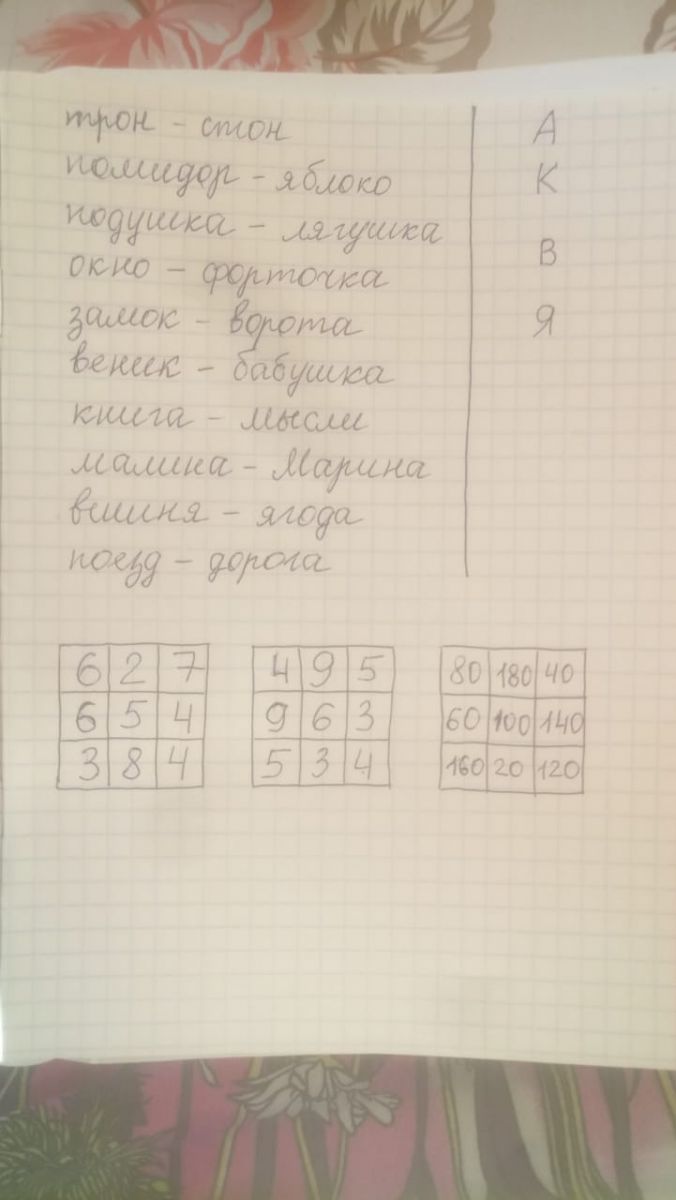 трон - стон
помидор - яблоко
подушка - лягушка
окно - форточка
замок - ворота
веник - бабушка
книга - мысли
малина - Марина
вишня - ягода
поезд - дорога
А
К
В
Я
6 2 7
6 5 4
3 8 4
4 9 5
9 6 3
5 3 4
80 180 40
60 100 140
160 20 120